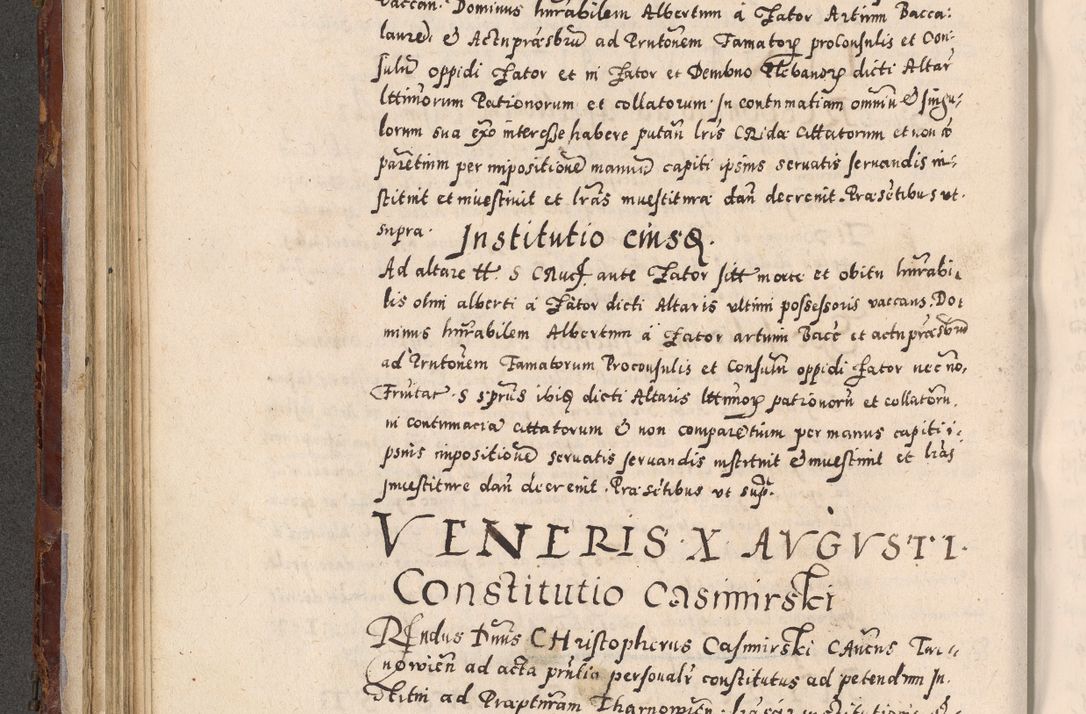 vaccan. Dominus hnrabilem Albertum á Zator Artium Bacca:
laured. & Actu præsbrū ad Prntōnem Famatorꝝ proConsulis et Con:
sulū oppidi Zator et in Zator et Dembno Plebanorꝝ dicti Altar
lttimorum Patronorum et collatorum in contumatiam omniū & singu:
lorum sua exō interesse habere putān lrīs CRidæ Cittatorum et non cō
parētium per impositionē manuū capiti ipsius servatis servandis in:
stituit et investivit et lrās investituræ dān decrevit. Præsētibus ut
supra. Institutio eiusq.
Ad altare tt S CRucꝭ ante Zator sitt morte et obitu hnrabi
lis olim alberti á Zator dicti Altaris ultimi possessoris vaccans. Do:
minus hnrabilem Albertum á Zator artium Bacē et actu præsbrū
ad Prntōnem Famatorum Proconsulis et Consulū oppidi Zator nec nō,
Frūtar S sprūs ibiq dicti Altaris lttimorꝝ patronorū et collatorū,
in contumaciā cittatorum & non comparētium per manus capiti i:
psius impositionē servatis servandis instituit & investivit et lrās
investiture dān decrevit. Præsētibus ut supr.
VENERIS X AVGVSTI.
Constitutio Casimirski
Rndus Dnus CHristopherus Casimirski CAnēus Tar
nowiēn ad acta prntia personalr constitutus ad petendum In
ad Præpturam Tharnowiēn